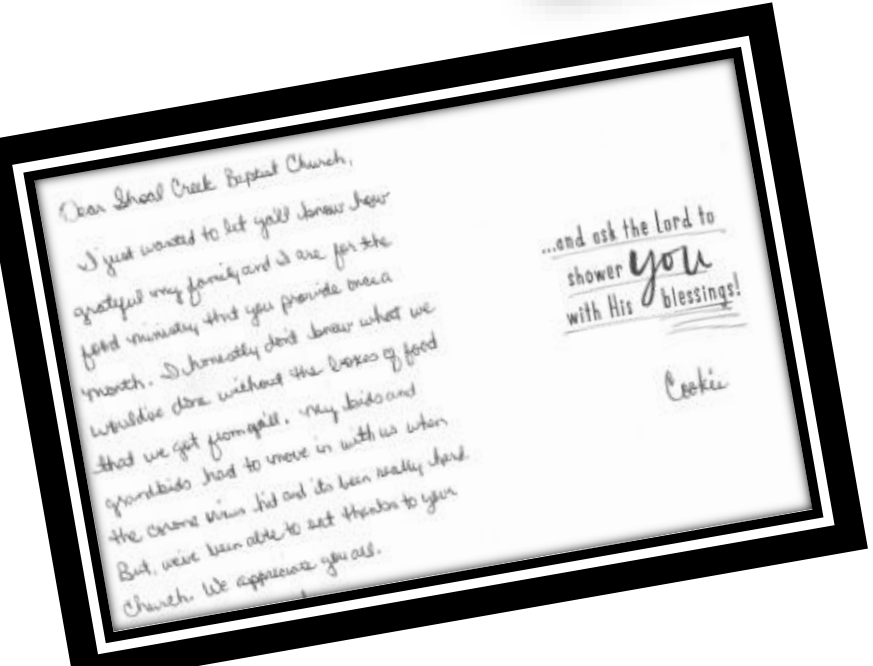 Dear Shoal Creek Baptist Church,
I just wanted to let yall know how
grateful my family and I are for the
food ministry that you provide once a
month. I honestly don't know what we
would've done without the boxes of food
that we got from yall. My kids and
grandkids had to move in with us when
the corona virus hit and its been really hard.
But, we've been able to eat thanks to your
Church. We appreciate you all.
...and ask the Lord to
shower you
with His blessings!
Cookie